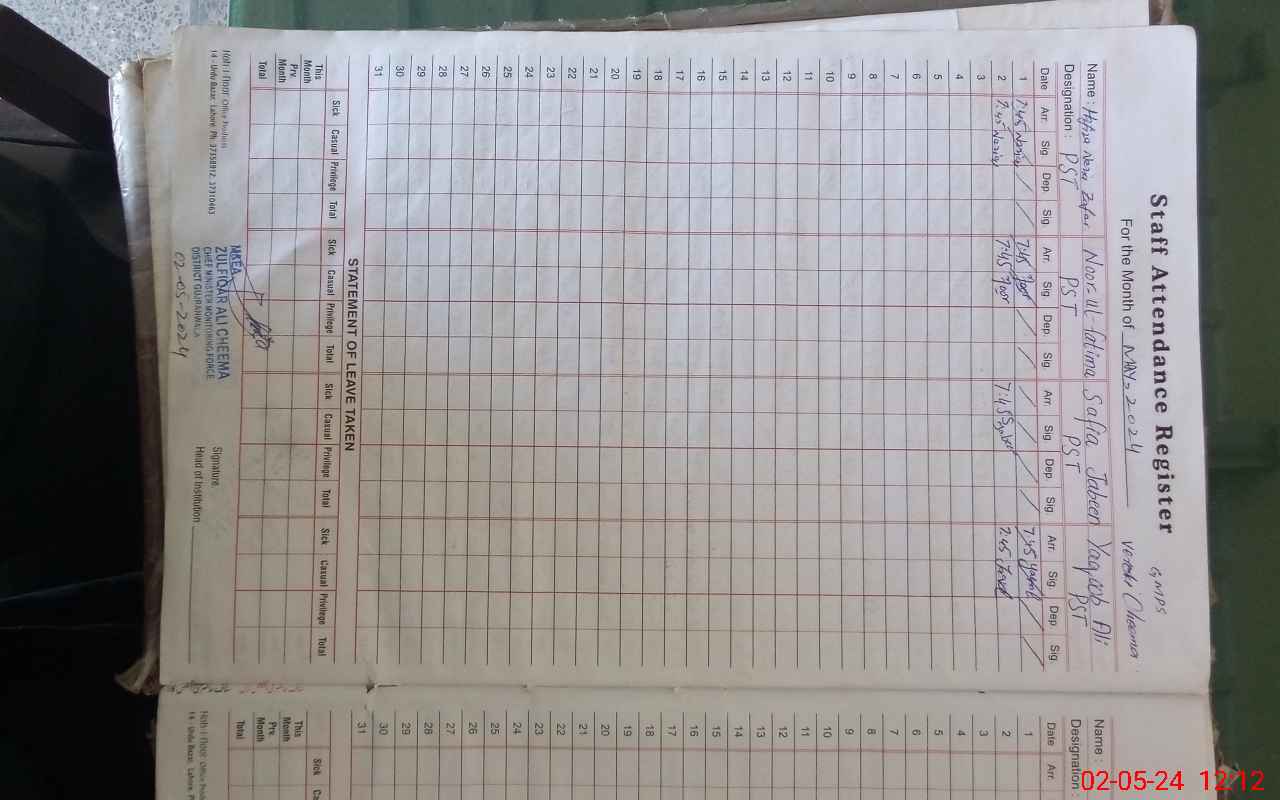 Staff Attendance Register
GMPS
For the Month of MAY, 2024
Cheema
Name : Zafar Noor-Ul-fatima Safia Jabeen Yaqoob Ali
Designation : PST PST PST PST
Date Arr. Sig Dep. Sig Arr. Sig. Dep. Sig. Arr. Sig. Dep. Sig. Arr. Sig. Dep Sig
1 7:45 7:45 Noor 7:45
2 7:45 7:45 Noor 7:45 7:45
3
4
5
6
7
8
9
10
11
12
13
14
15
16
17
18
19
20
21
22
23
24
25
26
27
28
29
30
31
STATEMENT OF LEAVE TAKEN
Sick Casual Privilege Total Sick Casual Privilege Total Sick Casual Privilege Total Sick Casual Privilege Total
This Month
Prv. Month
Total
MAEA
ZULFIQAR ALI CHEEMA
CHIEF MINISTER MONITORING FORCE
DISTRICT GUJRANWALA
02-05-2024
Signature
Head of Institution
14 - Urdu Bazar, Lahore. Ph: 37358912, 37310463
Name :
Designation :
Date Arr.
1
2
3
4
5
6
7
8
9
10
11
12
13
14
15
16
17
18
19
20
21
22
23
24
25
26
27
28
29
30
31
Sick
This Month
Prv. Month
Total
14 - Urdu Bazar, Lahore,
02-05-24 12:12